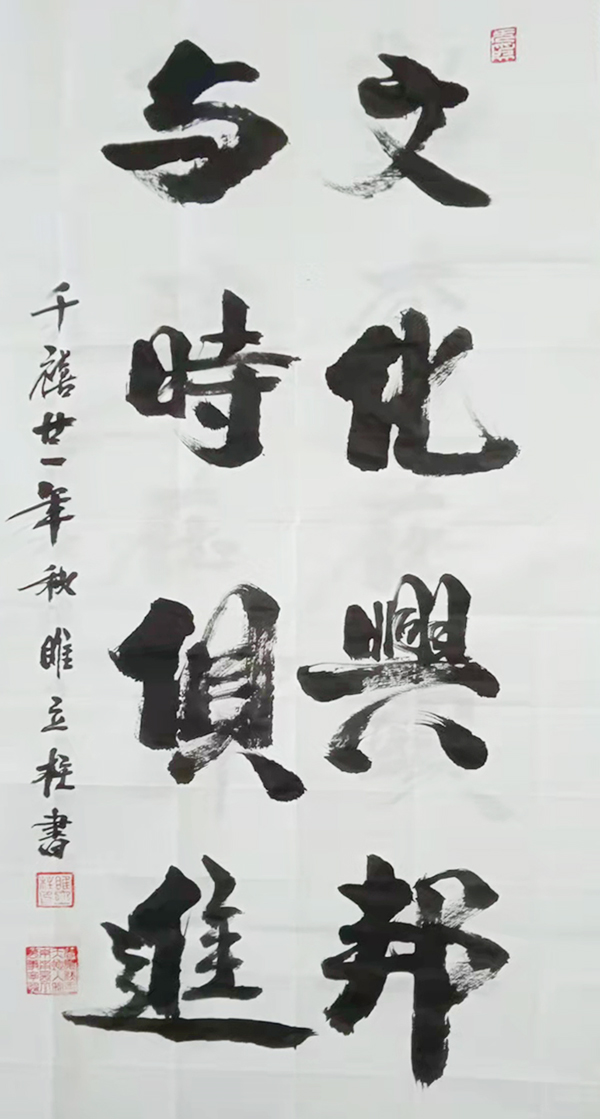 文化興邦
与時俱進
千禧廿一年秋睢立柱書